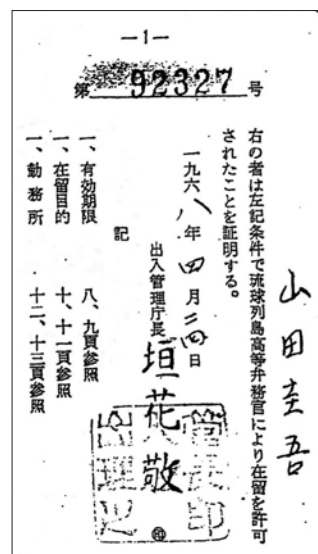 —1—
第 92327 号
山田圭吾
右の者は左記条件で琉球列島高等弁務官により在留を許可
されたことを証明する。
一九六八年四月二四日
出入管理庁長 垣花敬
記
一、有効期限 八、九頁参照
一、在留目的 十、十一頁参照
一、勤務所 十二、十三頁参照